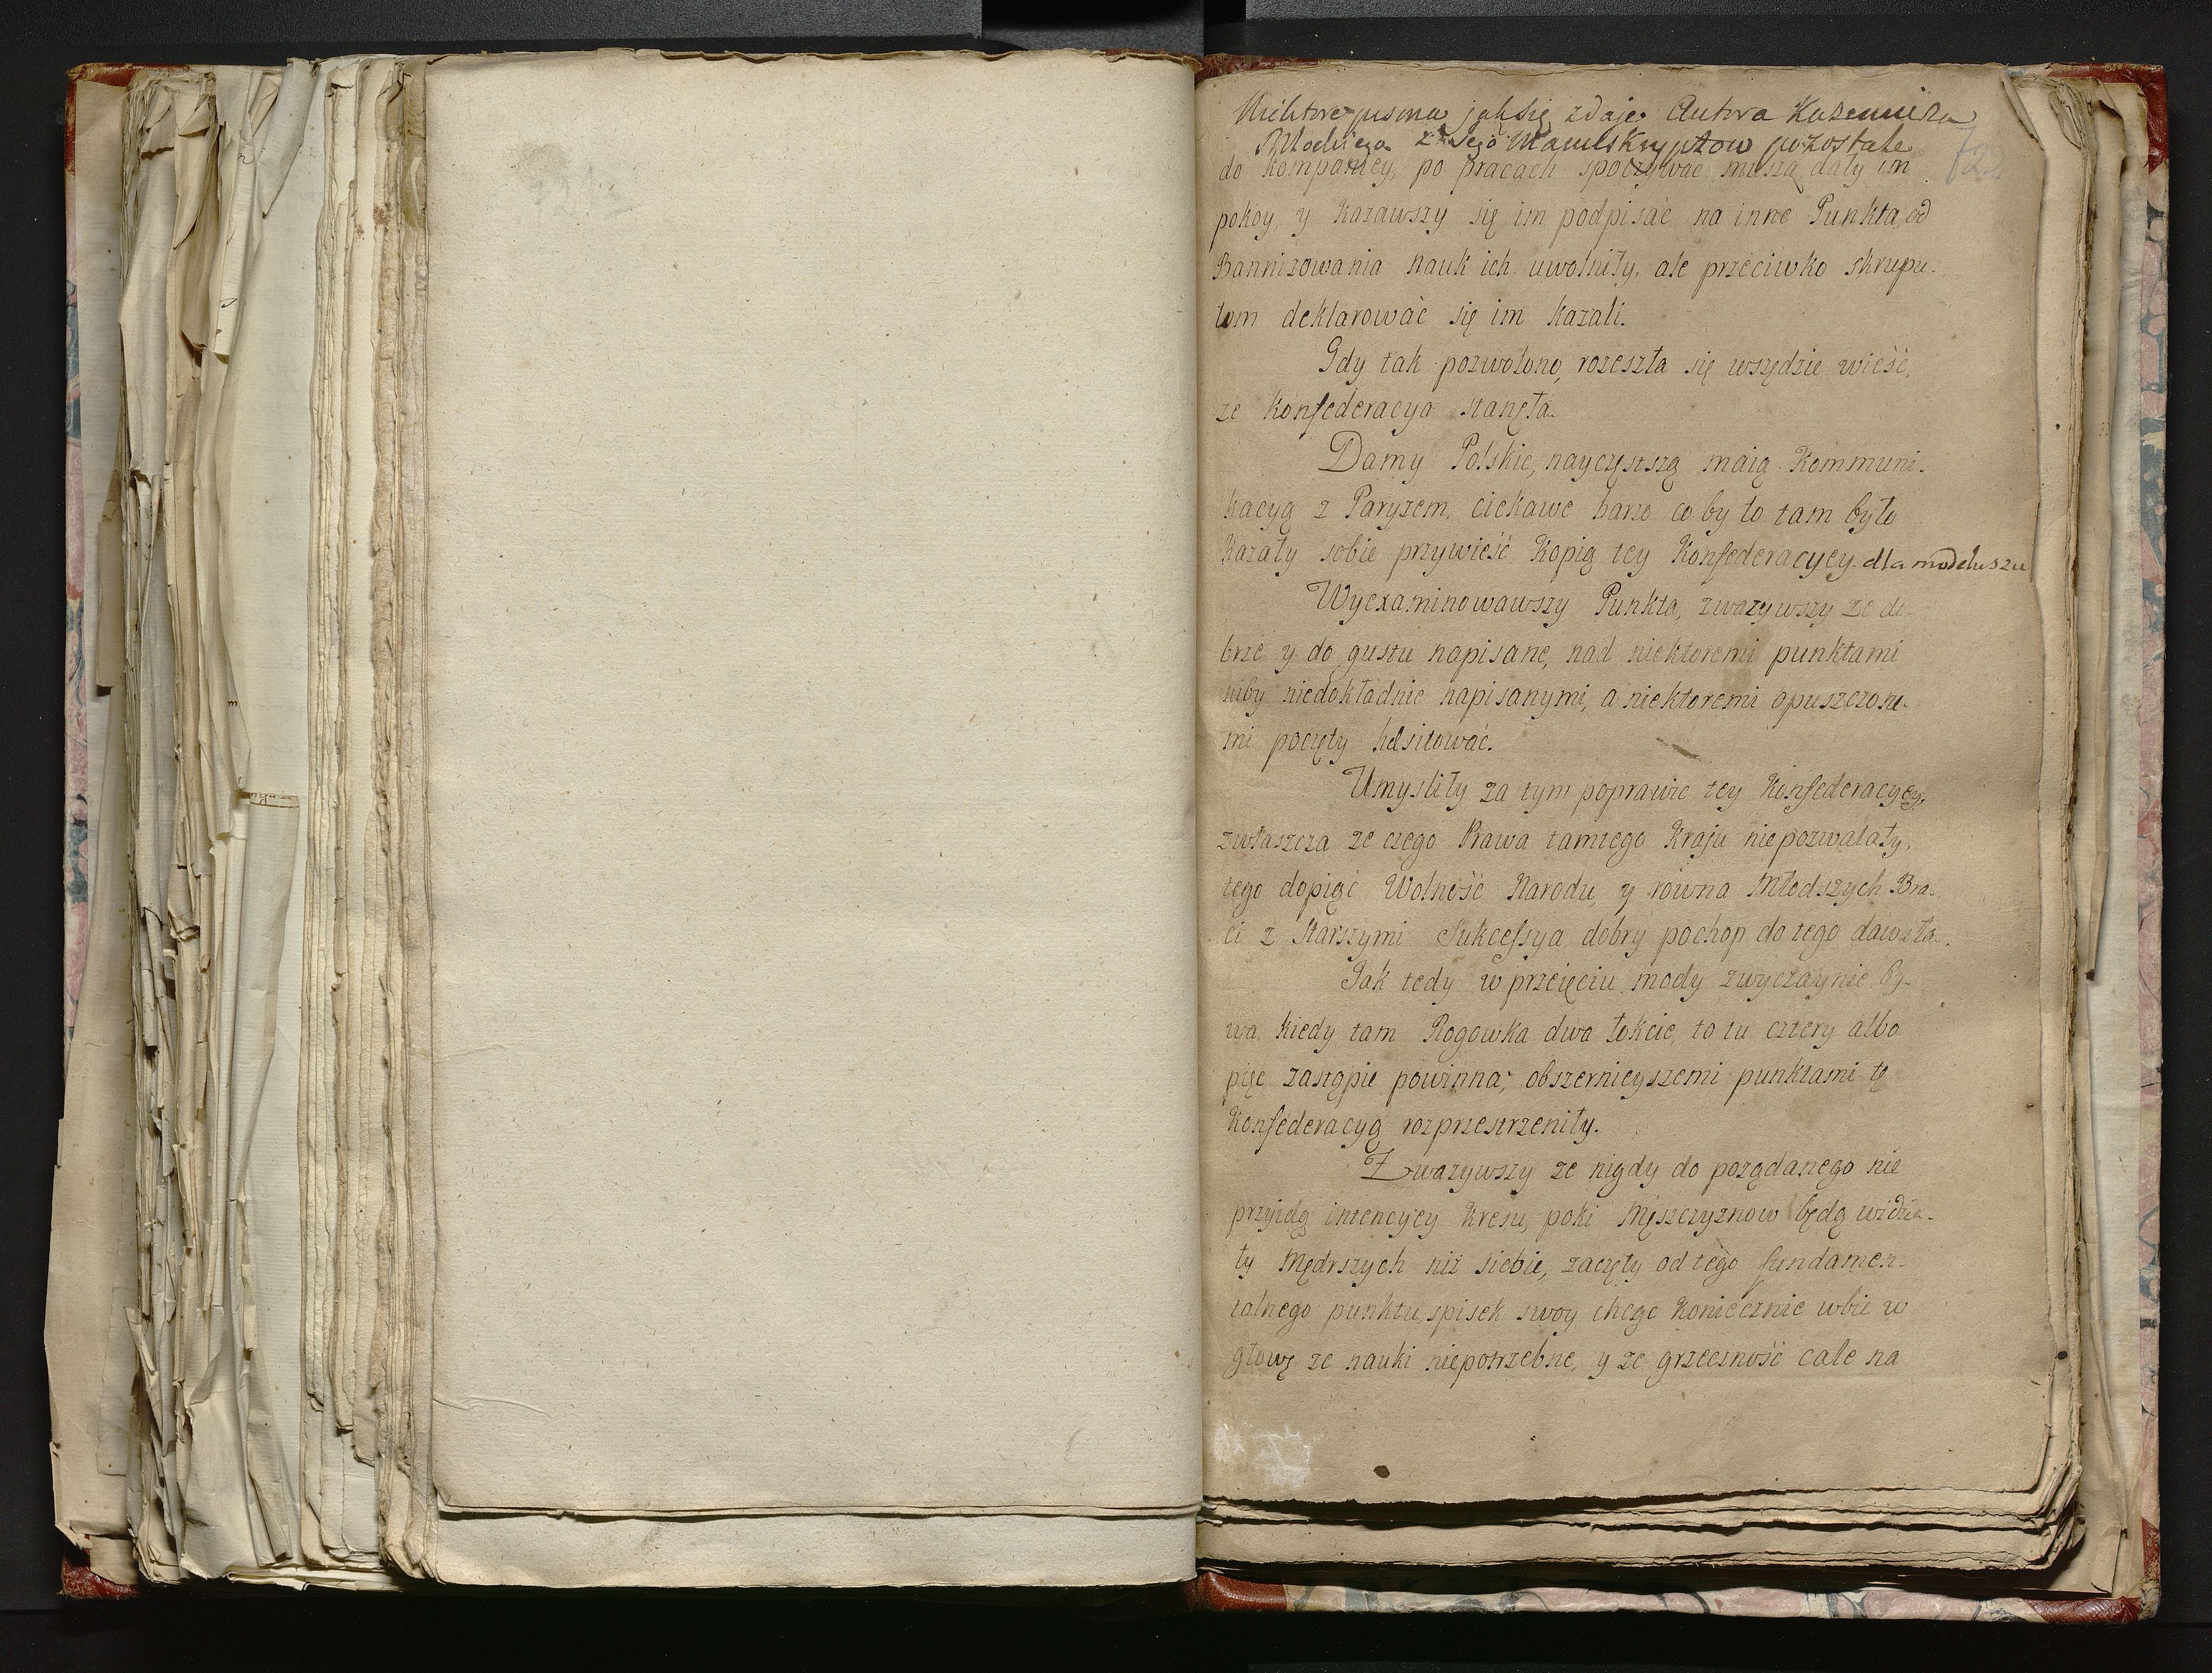 Niektore pisma jak się zdaje Autora Kazemiera
z Jego Manuskryptow pozostałe
do kompaniey, po pracach spoczywac muszą dały im
pokoy, y kazawszy się im podpisać na inne Punkta, od
Bannizowania nauk ich uwolniły, ale przeciwko skrupu-
łom deklarować się im kazali.
Gdy tak pozwolono, rozeszła się wszędzie wieść,
ze Konfederacya stanęła.
Damy Polskie, nayczęstszą maią Kommuni-
kacyą z Paryzem, ciekawe barzo co by to tam było
Kazały sobie przywieść Kopią tey Konfederacyey dla modeluszu
Wyexaminowawszy Punkta, zwazywszy ze do-
brze y do gustu napisane, nad niektoremi punktami
niby niedokładnie napisanymi, a niektoremi opuszczone-
mi poczęły hæsitować.
Umysliły za tym poprawic tey Konfederacyey,
zwłaszcza ze czego Prawa tamtego Kraju niepozwalały,
tego dopiąć Wolność Narodu, y rowna Młodszych Bra-
ci z Starszymi Sukcessya dobry pochop do tego dawała.
Jak tedy w przeięciu mody zwyczaynie by-
wa, kiedy tam Rogowka dwa łokcie, to tu cztery albo
pięc zastąpic powinna; obszernieyszemi punktami tę
Konfederacyą rozprzestrzeniły.
Zwazywszy ze nigdy do poządanego nie
przyidą intencyey Kresu, poki Męszczyznow będą widzia-
ły Mędrszych niz siebie, zaczęły od tego fundamen-
talnego punktu spisek swoy, chcąc Koniecznie wbic w
głowę ze nauki niepotrzebne, y ze grzeczność cale na